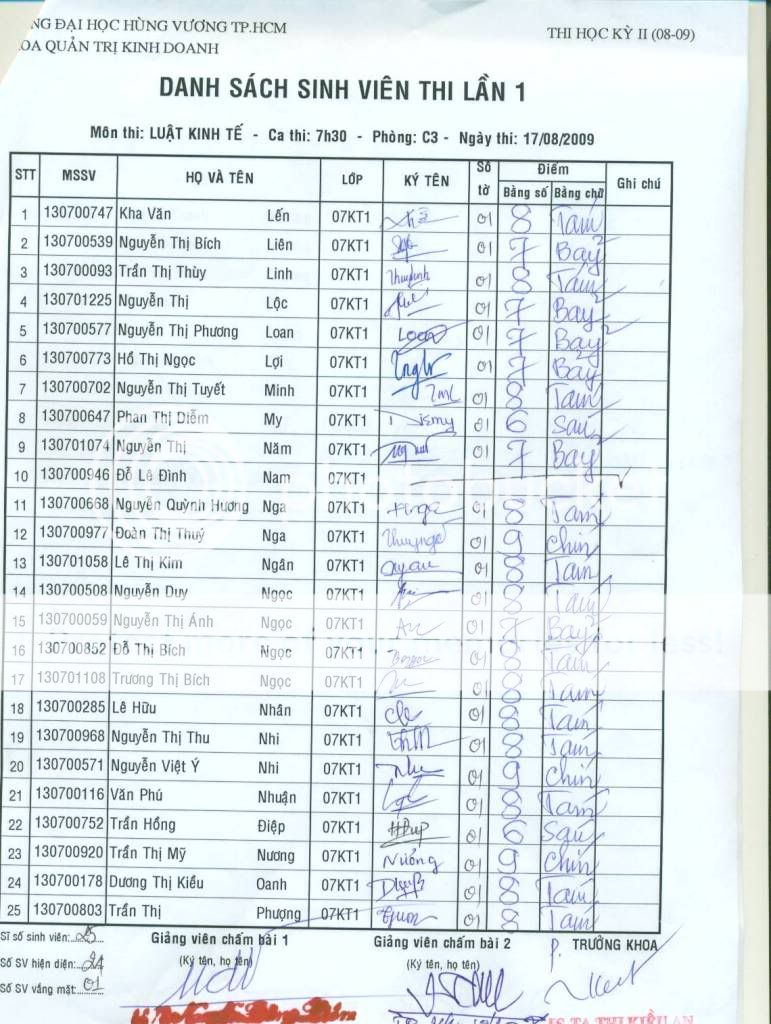 NG ĐẠI HỌC HÙNG VƯƠNG TP.HCM
OA QUẢN TRỊ KINH DOANH
THI HỌC KỲ II (08-09)
DANH SÁCH SINH VIÊN THI LẦN 1
Môn thi: LUẬT KINH TẾ - Ca thi: 7h30 - Phòng: C3 - Ngày thi: 17/08/2009
STT MSSV HỌ VÀ TÊN LỚP KÝ TÊN Số tờ Điểm Ghi chú
Bằng số Bằng chữ
1 130700747 Kha Văn Lến 07KT1 01 8 Tám
2 130700539 Nguyễn Thị Bích Liên 07KT1 01 7 Bảy
3 130700093 Trần Thị Thùy Linh 07KT1 Thuylinh 01 8 Tám
4 130701225 Nguyễn Thị Lộc 07KT1 01 7 Bảy
5 130700577 Nguyễn Thị Phương Loan 07KT1 Loan 01 7 Bảy
6 130700773 Hồ Thị Ngọc Lợi 07KT1 01 7 Bảy
7 130700702 Nguyễn Thị Tuyết Minh 07KT1 01 8 Tám
8 130700647 Phan Thị Diễm My 07KT1 01 6 Sáu
9 130701074 Nguyễn Thị Năm 07KT1 01 7 Bảy
10 130700946 Đỗ Lê Đình Nam 07KT1 ✓
11 130700668 Nguyễn Quỳnh Hương Nga 07KT1 01 8 Tám
12 130700977 Đoàn Thị Thuý Nga 07KT1 01 9 Chín
13 130701058 Lê Thị Kim Ngân 07KT1 01 8 Tám
14 130700508 Nguyễn Duy Ngọc 07KT1 01 8 Tám
15 130700059 Nguyễn Thị Ánh Ngọc 07KT1 01 7 Bảy
16 130700852 Đỗ Thị Bích Ngọc 07KT1 01 8 Tám
17 130701108 Trương Thị Bích Ngọc 07KT1 01 8 Tám
18 130700285 Lê Hữu Nhân 07KT1 01 8 Tám
19 130700968 Nguyễn Thị Thu Nhi 07KT1 01 8 Tám
20 130700571 Nguyễn Việt Ý Nhi 07KT1 01 9 Chín
21 130700116 Văn Phú Nhuận 07KT1 01 8 Tám
22 130700752 Trần Hồng Điệp 07KT1 01 6 Sáu
23 130700920 Trần Thị Mỹ Nương 07KT1 Nương 01 9 Chín
24 130700178 Dương Thị Kiều Oanh 07KT1 01 8 Tám
25 130700803 Trần Thị Phượng 07KT1 01 8 Tám
Sĩ số sinh viên: 25 Giảng viên chấm bài 1 Giảng viên chấm bài 2 P. TRƯỞNG KHOA
Số SV hiện diện: 24 (Ký tên, họ tên) (Ký tên, họ tên)
Số SV vắng mặt: 01
TS. TẠ THỊ KIỀU AN